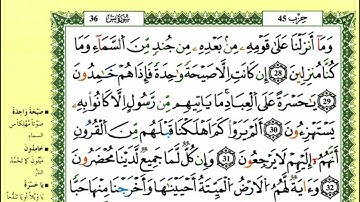 حزب 45
سورة يس
36
وَمَا أَنزَلْنَا عَلَىٰ قَوْمِهِ مِنۢ بَعْدِهِ مِن جُندٍ مِّنَ السَّمَاءِ وَمَا
كُنَّا مُنزِلِينَ 28 إِن كَانَتْ إِلَّا صَيْحَةً وَاحِدَةً فَإِذَا هُمْ خَامِدُونَ
29 يَا حَسْرَةً عَلَى الْعِبَادِ مَا يَأْتِيهِم مِّن رَّسُولٍ إِلَّا كَانُوا بِهِ
يَسْتَهْزِءُونَ 30 أَلَمْ يَرَوْا كَمْ أَهْلَكْنَا قَبْلَهُم مِّنَ الْقُرُونِ
أَنَّهُمْ إِلَيْهِمْ لَا يَرْجِعُونَ 31 وَإِن كُلٌّ لَّمَّا جَمِيعٌ لَّدَيْنَا مُحْضَرُونَ
32 وَءَايَةٌ لَّهُمُ الْأَرْضُ الْمَيْتَةُ أَحْيَيْنَاهَا وَأَخْرَجْنَا مِنْهَا حَبًّا
صَيْحَةً وَاحِدَةً
صَوْتًا مُهْلِكًا
السماء
خَامِدُونَ
مَيِّتُونَ كما تَخْمُدُ
النار
يَا حَسْرَةً